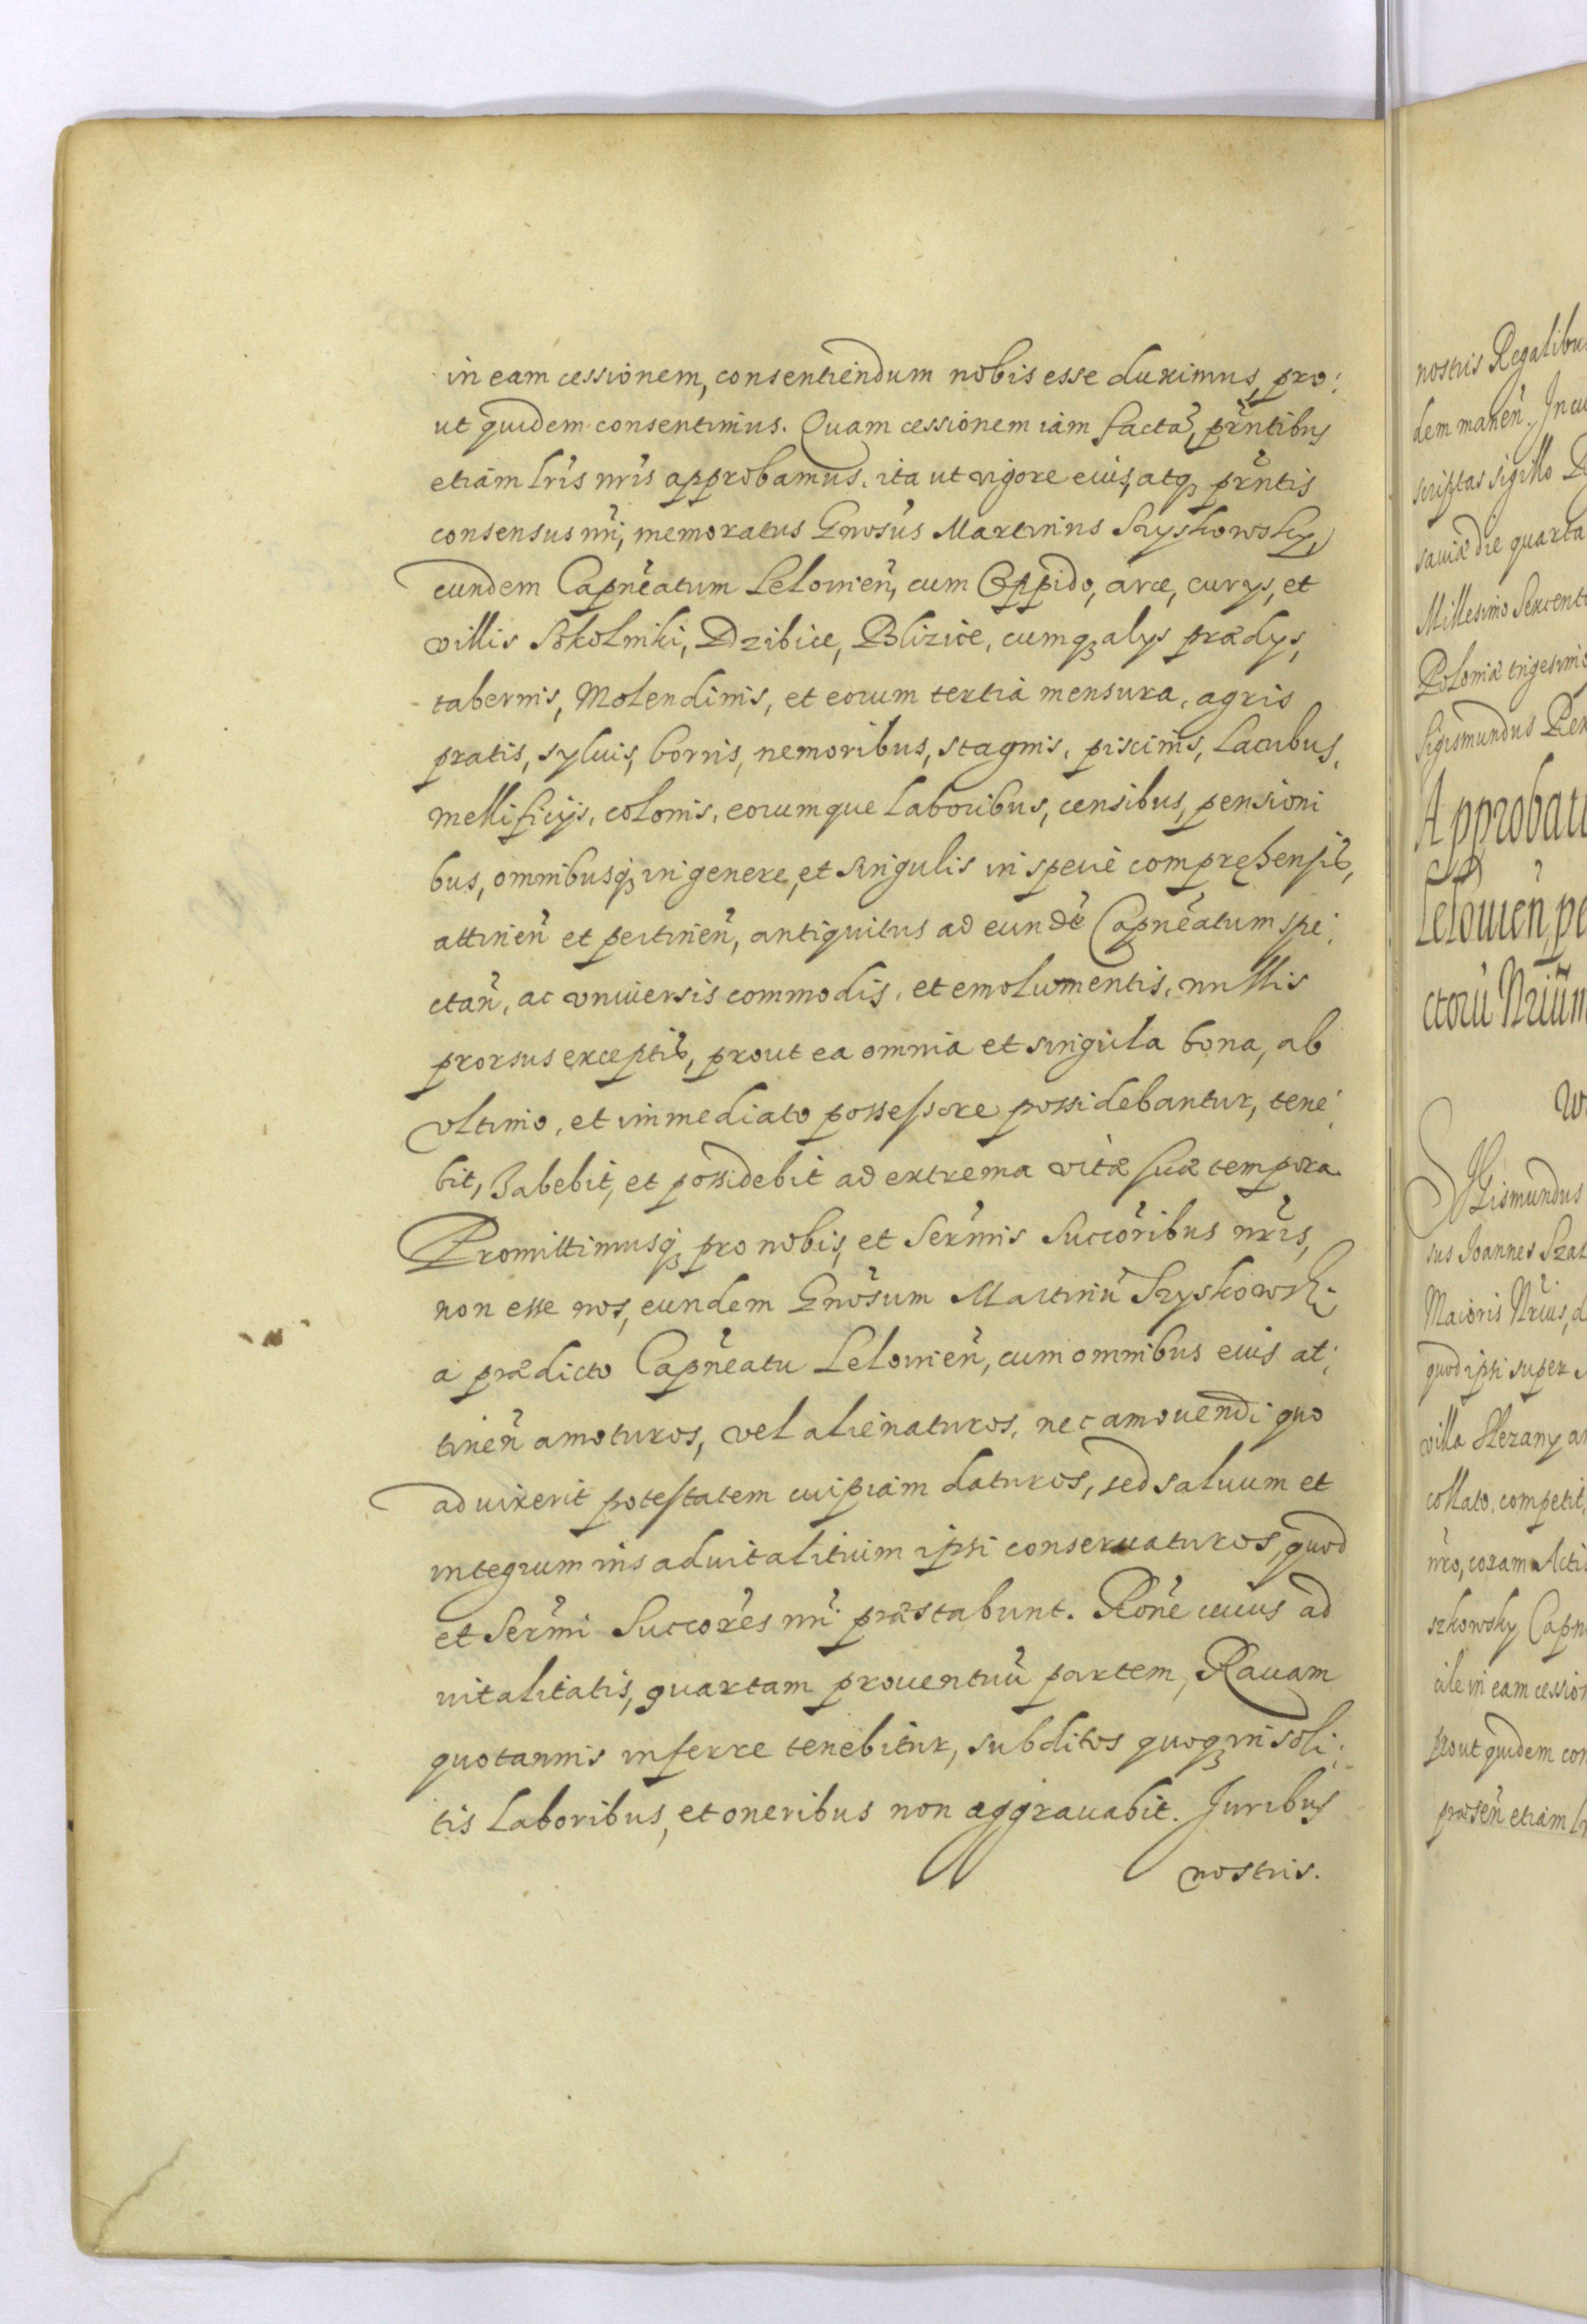 in eam cessionem, consentiendum nobis esse duximus, pro:
ut quidem consentimus. Quam cessionem iam factã, prñtibus
etiam lris nris approbamus, ita ut vigore eius, atq3 prñtis
consensus nri, memoratus Gnosus Martinus Szyskowsky,
eundem Capneatum Lelovien̄, cum Oppido, arce, curys, et
villis Sokolniki, Dzibice, Blizice, cumq3 alys prædys,
tabernis, Molendinis, et eorum tertia mensura, agris
pratis, syluis, borris, nemoribus, stagnis, piscinis, Lacubus,
mellificijs, colonis, eorumque Laboribus, censibus, pensioni
bus, omnibusq3 in genere, et singulis in specie compręhensis,
attinen̄ et pertinen̄, antiquitus ad eundẽ Capneatum spe:
ctan̄, ac vniuersis commodis, et emolumentis, nullis
prorsus exceptis, prout ea omnia et singula bona, ab
vltimo, et immediato possessore possidebantur, tene:
bit, habebit, et possidebit ad extrema vitæ suæ tempora.
Promittimusq3 pro nobis, et Sermis Succoribus nris,
non esse nos, eundem Gnosum Martinũ Szyskowski
a prædicto Capneatu Lelovien̄, cum omnibus eius at:
tinen̄ amoturos, vel alienaturos, nec amouendi quo
aduixerit potestatem cuipiam daturos, sed saluum et
integrum ius aduitalitium ipsi conseruaturos, quod
et Sermi Succores nri præstabunt. Rone cuius ad
uitalitatis, quartam prouentuũ partem, Rauam
quotannis inferre tenebitur, subditos quoq3 insoli:
tis Laboribus, et oneribus non aggrauabit. Juribus
nostris.
nostris Regalibu
dem manen̄. In cu
scriptas sigillo
sauiæ die quarta
Millesimo Sexcent
Poloniæ trigesimo
Sigismundus Rex
Approbati
Lelouien̄ pe
ctorũ Nrium
Sigismundus
sus Joannes Szat
Maioris Nrius, d
quod ipsi super
villa
collato, competit,
nro, coram Actis
szkowsky Capn
cile in eam cession
prout quidem con
præsen̄ etiam lr